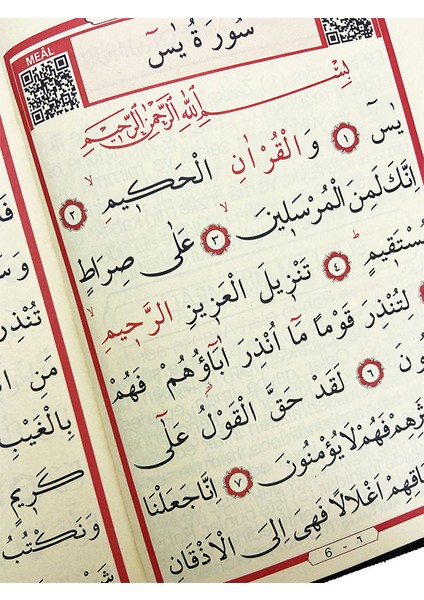 MEÂL
سُورَةُ يٰسٓ
بِسْــــــمِ اللّٰهِ الرَّحْمٰنِ الرَّحِيمِ
يٰسٓ ﴿١﴾ وَالْقُرْاٰنِ الْحَكِيمِۙ ﴿٢﴾
اِنَّكَ لَمِنَ الْمُرْسَلِينَۙ ﴿٣﴾ عَلٰى صِرَاطٍ
مُسْتَقِيمٍۜ ﴿٤﴾ تَنْزِيلَ الْعَزِيزِ الرَّحِيمِۙ
لِتُنْذِرَ قَوْمًا مَٓا اُنْذِرَ اٰبَٓاؤُ۬هُمْ فَهُمْ
﴿٦﴾ لَقَدْ حَقَّ الْقَوْلُ عَلٰٓى
فَهُمْ لَا يُؤْمِنُونَ ﴿٧﴾ اِنَّا جَعَلْنَا
اَغْلَالًا فَهِىَ اِلَى الْاَذْقَانِ
6 - ٦
تُنْذِرْ
مَنِ
بِالْغَيْبِ
كَرِيمٍ
وَنَكْتُبُ